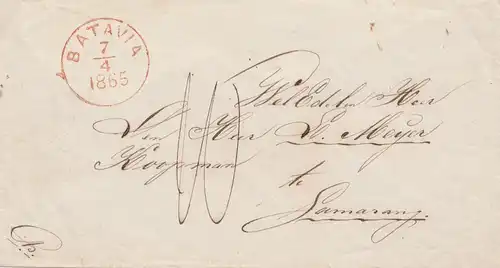 BATAVIA
7/4
1865
10
WelEdelen Heer
Den Heer D. Meyer
Koopman
te
Samarang.
P.